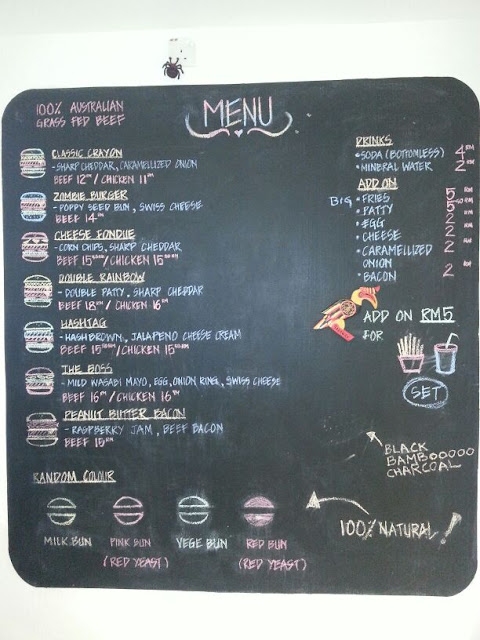 MENU
100% AUSTRALIAN
GRASS FED BEEF
CLASSIC CRAYON
- SHARP CHEDDAR, CARAMELLIZED ONION
BEEF 12RM / CHICKEN 11RM
ZOMBIE BURGER
- POPPY SEED BUN, SWISS CHEESE
BEEF 14RM
CHEESE FONDUE
- CORN CHIPS, SHARP CHEDDAR
BEEF 15 / CHICKEN 15
DOUBLE RAINBOW
- DOUBLE PATTY, SHARP CHEDDAR
BEEF 18RM / CHICKEN 16RM
HASHTAG
- HASHBROWN, JALAPENO CHEESE CREAM
BEEF 15 / CHICKEN 15
THE BOSS
- MILD WASABI MAYO, EGG, ONION RING, SWISS CHEESE
BEEF 16RM / CHICKEN 16RM
PEANUT BUTTER BACON
- RASPBERRY JAM, BEEF BACON
BEEF 15RM
DRINKS
• SODA (BOTTOMLESS) 4RM
• MINERAL WATER 2RM
ADD ON
BIG • FRIES 5RM
• PATTY 5
• EGG 2
• CHEESE 2
• CARAMELLIZED 2
ONION
• BACON 2RM
ADD ON RM5
FOR
SET
BLACK
BAMBOOOOO
CHARCOAL
RANDOM COLOUR
MILK BUN
PINK BUN
(RED YEAST)
VEGE BUN
RED BUN
(RED YEAST)
100% NATURAL!